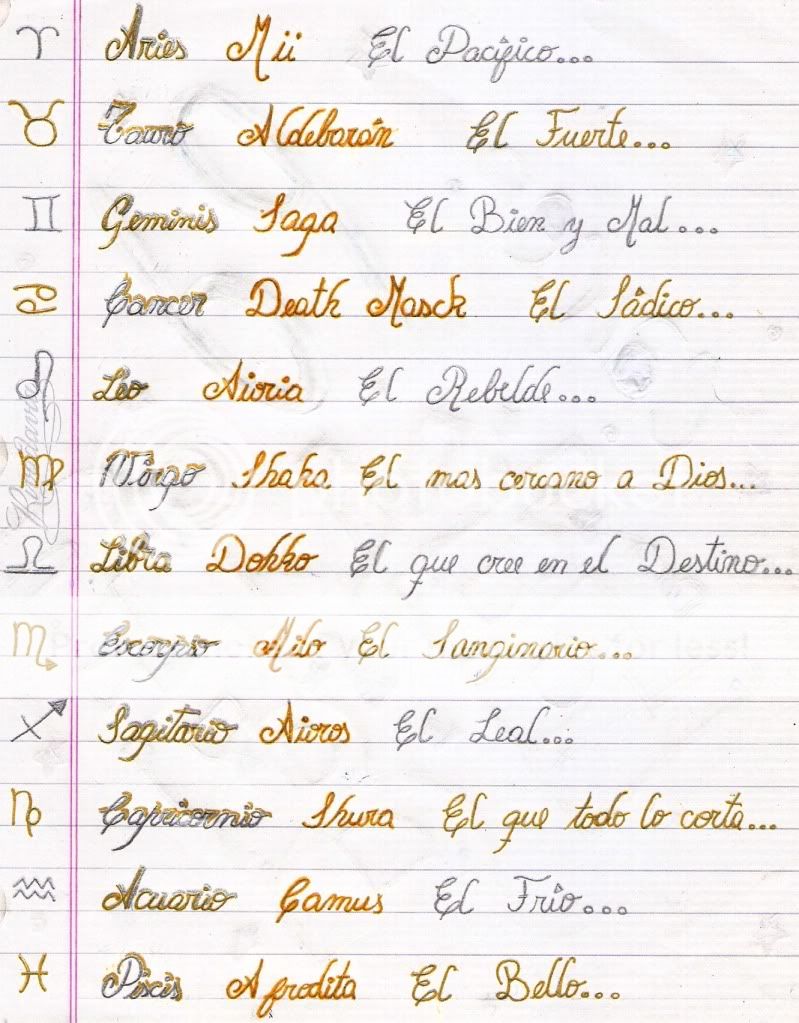 Aries Mii El Pacífico...
Tauro Aldebarán El Fuerte...
Geminis Saga El Bien y Mal...
Cancer Death Masck El Sádico...
Leo Aioria El Rebelde...
Virgo Shaka El mas cercano a Dios...
Libra Dohko El que cree en el Destino...
Escorpio Milo El Sanginario...
Sagitario Aioros El Leal...
Capricornio Shura El que todo lo corta...
Acuario Camus El Frío...
Piscis Afrodita El Bello...